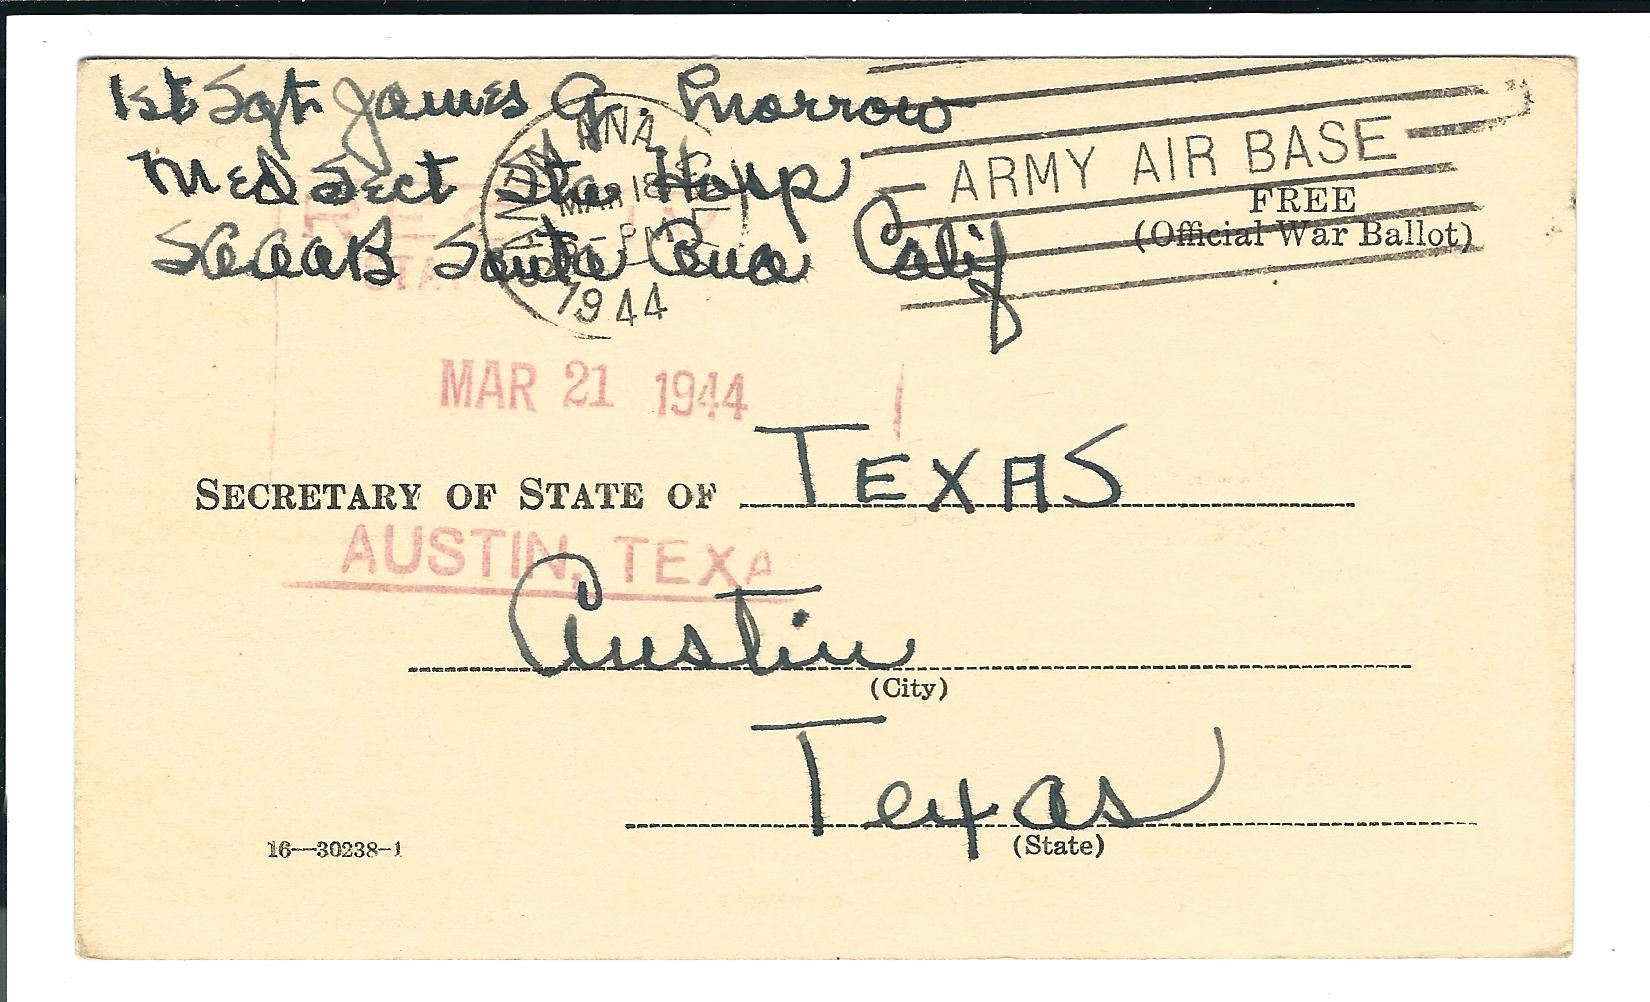 1st Sgt James G. Morrow
Med Sect Sta Hosp
SAAAB Santa Ana Calif
SANTA ANA
MAR 18
PM
1944
ARMY AIR BASE
FREE
(Official War Ballot)
MAR 21 1944
SECRETARY OF STATE OF TEXAS
AUSTIN, TEXA
Austin
(City)
Texas
(State)
16—30238-1